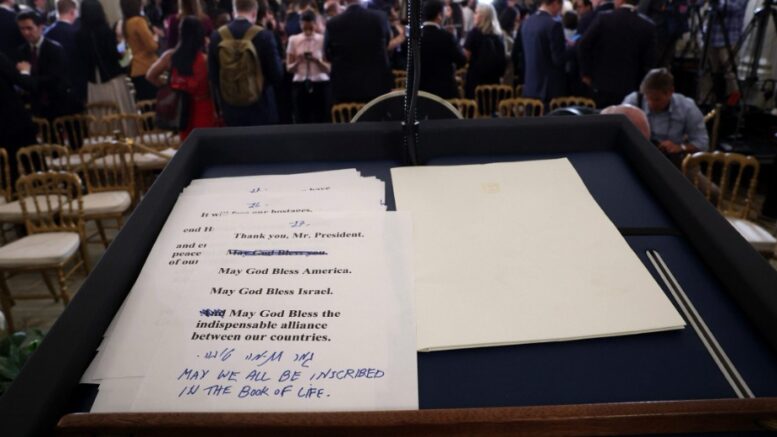 have
our hostages.
end
27
Thank you, Mr. President.
and
May God Bless you.
peace
of our
May God Bless America.
May God Bless Israel.
And May God Bless the
indispensable alliance
between our countries.
גמר חתימה טובה.
MAY WE ALL BE INSCRIBED
IN THE BOOK OF LIFE.